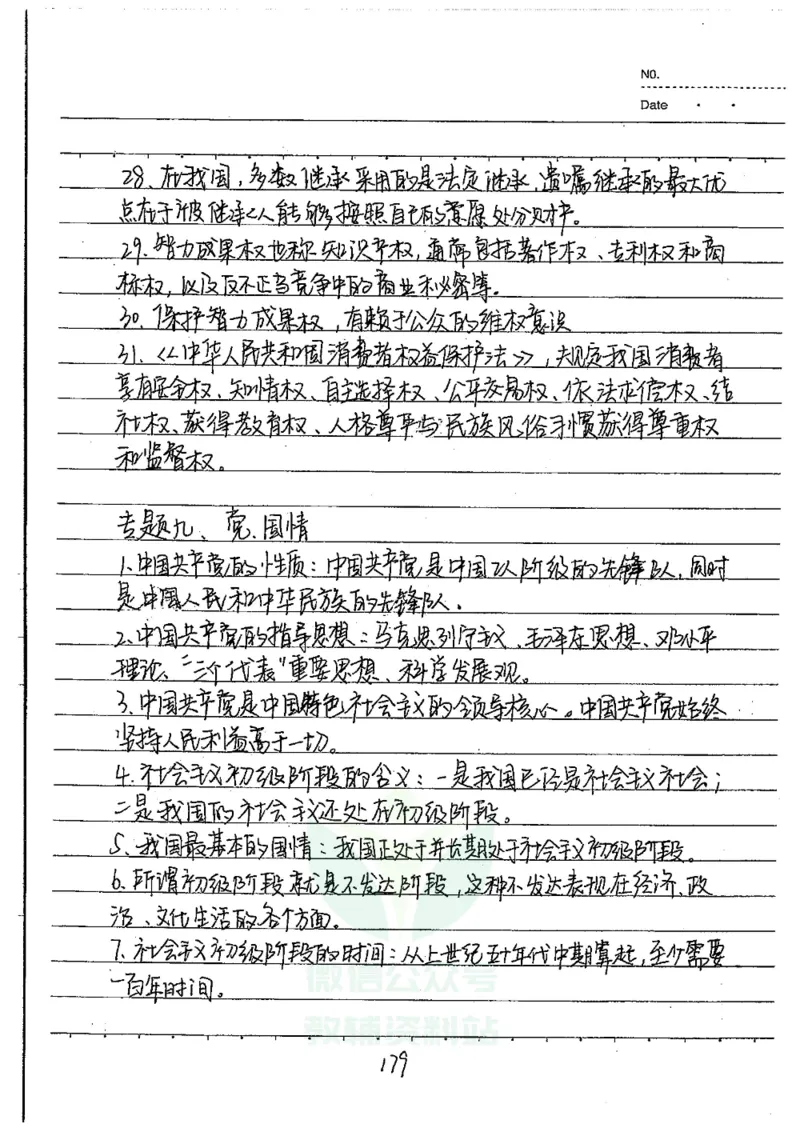 NO.
Date
28、在我国,多数继承采用的是法定继承,遗嘱继承的最大优
点在于被继承人能够按照自己的意愿处分财产。
29、智力成果权也称知识产权,通常包括著作权、专利权和商
标权,以及反不正当竞争中的商业秘密等。
30、保护智力成果权,有赖于公众的维权意识
31、《中华人民共和国消费者权益保护法》,规定我国消费者
享有安全权、知情权、自主选择权、公平交易权、依法求偿权、结
社权、获得教育权、人格尊严与民族风俗习惯获得尊重权
和监督权。
专题九、党、国情
1、中国共产党的性质:中国共产党是中国工人阶级的先锋队,同时
是中国人民和中华民族的先锋队.
2、中国共产党的指导思想:马克思列宁主义、毛泽东思想、邓小平
理论、“三个代表”重要思想、科学发展观。
3、中国共产党是中国特色社会主义的领导核心。中国共产党始终
坚持人民利益高于一切。
4、社会主义初级阶段的含义:一是我国已经是社会主义社会;
二是我国的社会主义还处在初级阶段。
5、我国最基本的国情:我国正处于并长期处于社会主义初级阶段。
6、所谓初级阶段就是不发达阶段,这种不发达表现在经济、政
治、文化生活的各个方面。
7、社会主义初级阶段的时间:从上世纪五十年代中期算起,至少需要
一百年时间。
微信公众号
教辅资料站
179